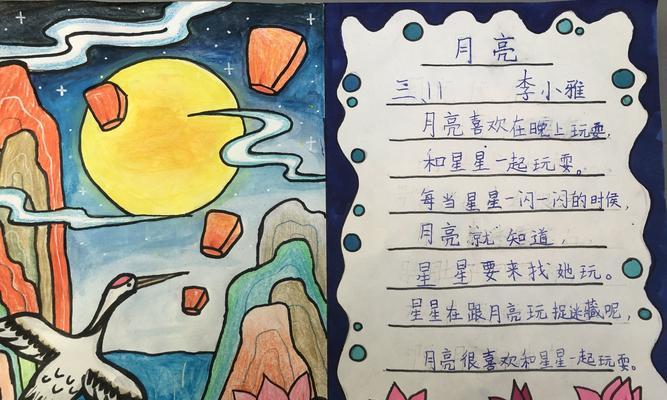 月亮
三、11 李小雅
月亮喜欢在晚上玩耍，
和星星一起玩耍。
每当星星一闪一闪的时候，
月亮就知道，
星星要来找她玩。
星星在跟月亮玩捉迷藏呢，
月亮很喜欢和星星一起玩耍。